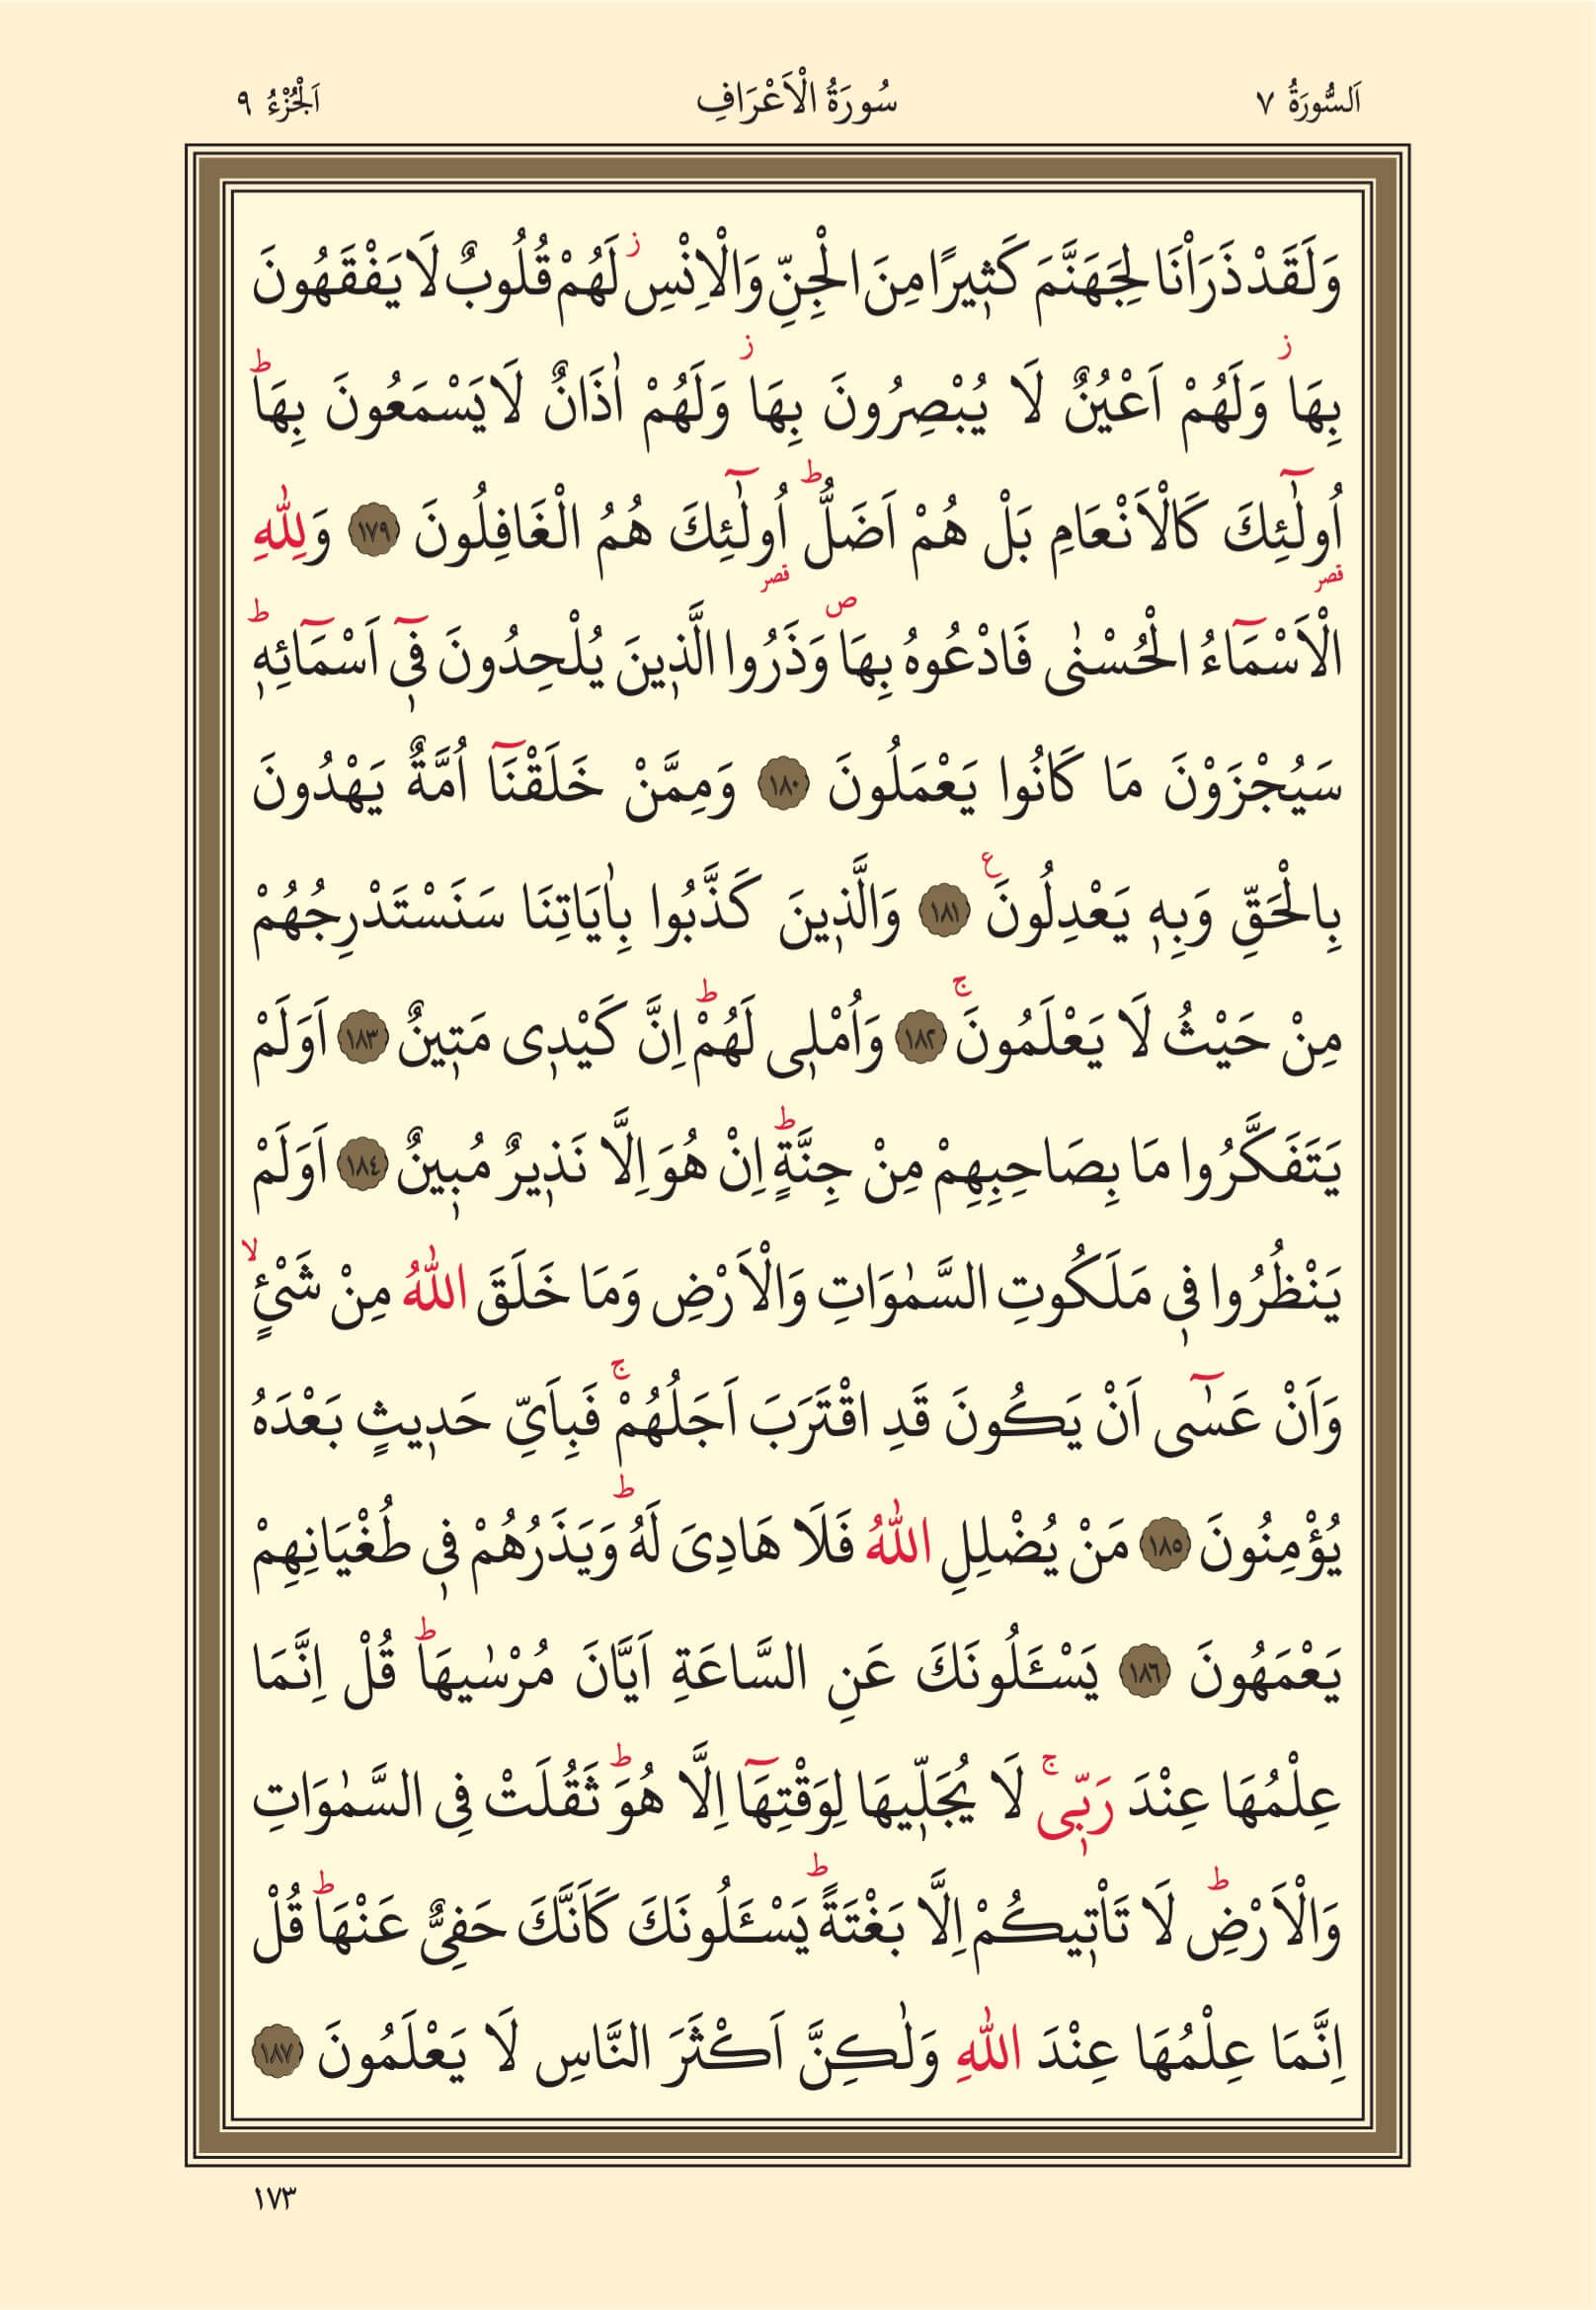 اَلسُّورَةُ ٧ سُورَةُ الْاَعْرَافِ اَلْجُزْءُ ٩
وَلَقَدْ ذَرَاْنَا لِجَهَنَّمَ كَث۪يرًا مِنَ الْجِنِّ وَالْاِنْسِۘ ز لَهُمْ قُلُوبٌ لَا يَفْقَهُونَ
بِهَا ز وَلَهُمْ اَعْيُنٌ لَا يُبْصِرُونَ بِهَا ز وَلَهُمْ اٰذَانٌ لَا يَسْمَعُونَ بِهَا ط
اُو۬لٰٓئِكَ قصر كَالْاَنْعَامِ بَلْ هُمْ اَضَلُّ ط اُو۬لٰٓئِكَ قصر هُمُ الْغَافِلُونَ ١٧٩ وَلِلّٰهِ
الْاَسْمَٓاءُ الْحُسْنٰى فَادْعُوهُ بِهَا ص وَذَرُوا الَّذ۪ينَ يُلْحِدُونَ ف۪ٓي اَسْمَٓائِه۪ ط
سَيُجْزَوْنَ مَا كَانُوا يَعْمَلُونَ ١٨٠ وَمِمَّنْ خَلَقْنَٓا اُمَّةٌ يَهْدُونَ
بِالْحَقِّ وَبِه۪ يَعْدِلُونَ ع ١٨١ وَالَّذ۪ينَ كَذَّبُوا بِاٰيَاتِنَا سَنَسْتَدْرِجُهُمْ
مِنْ حَيْثُ لَا يَعْلَمُونَ ج ١٨٢ وَاُمْل۪ى لَهُمْ ط اِنَّ كَيْد۪ى مَت۪ينٌ ١٨٣ اَوَلَمْ
يَتَفَكَّرُوا مَا بِصَاحِبِهِمْ مِنْ جِنَّةٍ ط اِنْ هُوَ اِلَّا نَذ۪يرٌ مُب۪ينٌ ١٨٤ اَوَلَمْ
يَنْظُرُوا ف۪ى مَلَكُوتِ السَّمٰوَاتِ وَالْاَرْضِ وَمَا خَلَقَ اللّٰهُ مِنْ شَىْءٍ لا
وَاَنْ عَسٰٓى اَنْ يَكُونَ قَدِ اقْتَرَبَ اَجَلُهُمْ ج فَبِاَىِّ حَد۪يثٍ بَعْدَهُ
يُؤْمِنُونَ ١٨٥ مَنْ يُضْلِلِ اللّٰهُ فَلَا هَادِىَ لَهُ ط وَيَذَرُهُمْ ف۪ى طُغْيَانِهِمْ
يَعْمَهُونَ ١٨٦ يَسْـَٔلُونَكَ عَنِ السَّاعَةِ اَيَّانَ مُرْسٰيهَا ط قُلْ اِنَّمَا
عِلْمُهَا عِنْدَ رَبّ۪ى ج لَا يُجَلّ۪يهَا لِوَقْتِهَٓا اِلَّا هُوَ ط ثَقُلَتْ فِى السَّمٰوَاتِ
وَالْاَرْضِ ط لَا تَاْت۪يكُمْ اِلَّا بَغْتَةً ط يَسْـَٔلُونَكَ كَاَنَّكَ حَفِىٌّ عَنْهَا ط قُلْ
اِنَّمَا عِلْمُهَا عِنْدَ اللّٰهِ وَلٰكِنَّ اَكْثَرَ النَّاسِ لَا يَعْلَمُونَ ١٨٧
١٧٣